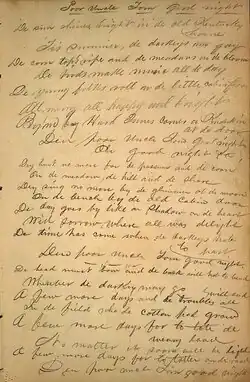 Poor Uncle Tom good night
De sun shines bright in de old Kentucky
home
Tis summer, de darkeys am gay
De corn top's ripe and de meadows in de bloom
De birds make music all de day
De young folks roll on de little cabin floor
All merry all happy and bright
By'm by Hard Times comes a knockin
at de door
Den poor Uncle Tom good night
Dey hunt no more for de possum and de coon
On de meadow, de hill and de shore
Dey sing no more by de glimmer ob de moon
On de bench by de old Cabin door
De day goes by like a shadow on de heart
Wid sorrow where all was delight
De time has come when de darkeys hab
to part
Den poor Uncle Tom good night
De head must bow and de back will hab to bend
Wherever de darkey may go
A few more days and de troubles all
will end
In de field where de cotton grow
A few more days for to tote de
weary load
No matter it will neber be light
A few more days for to totter on de road
Den poor Uncle Tom good night